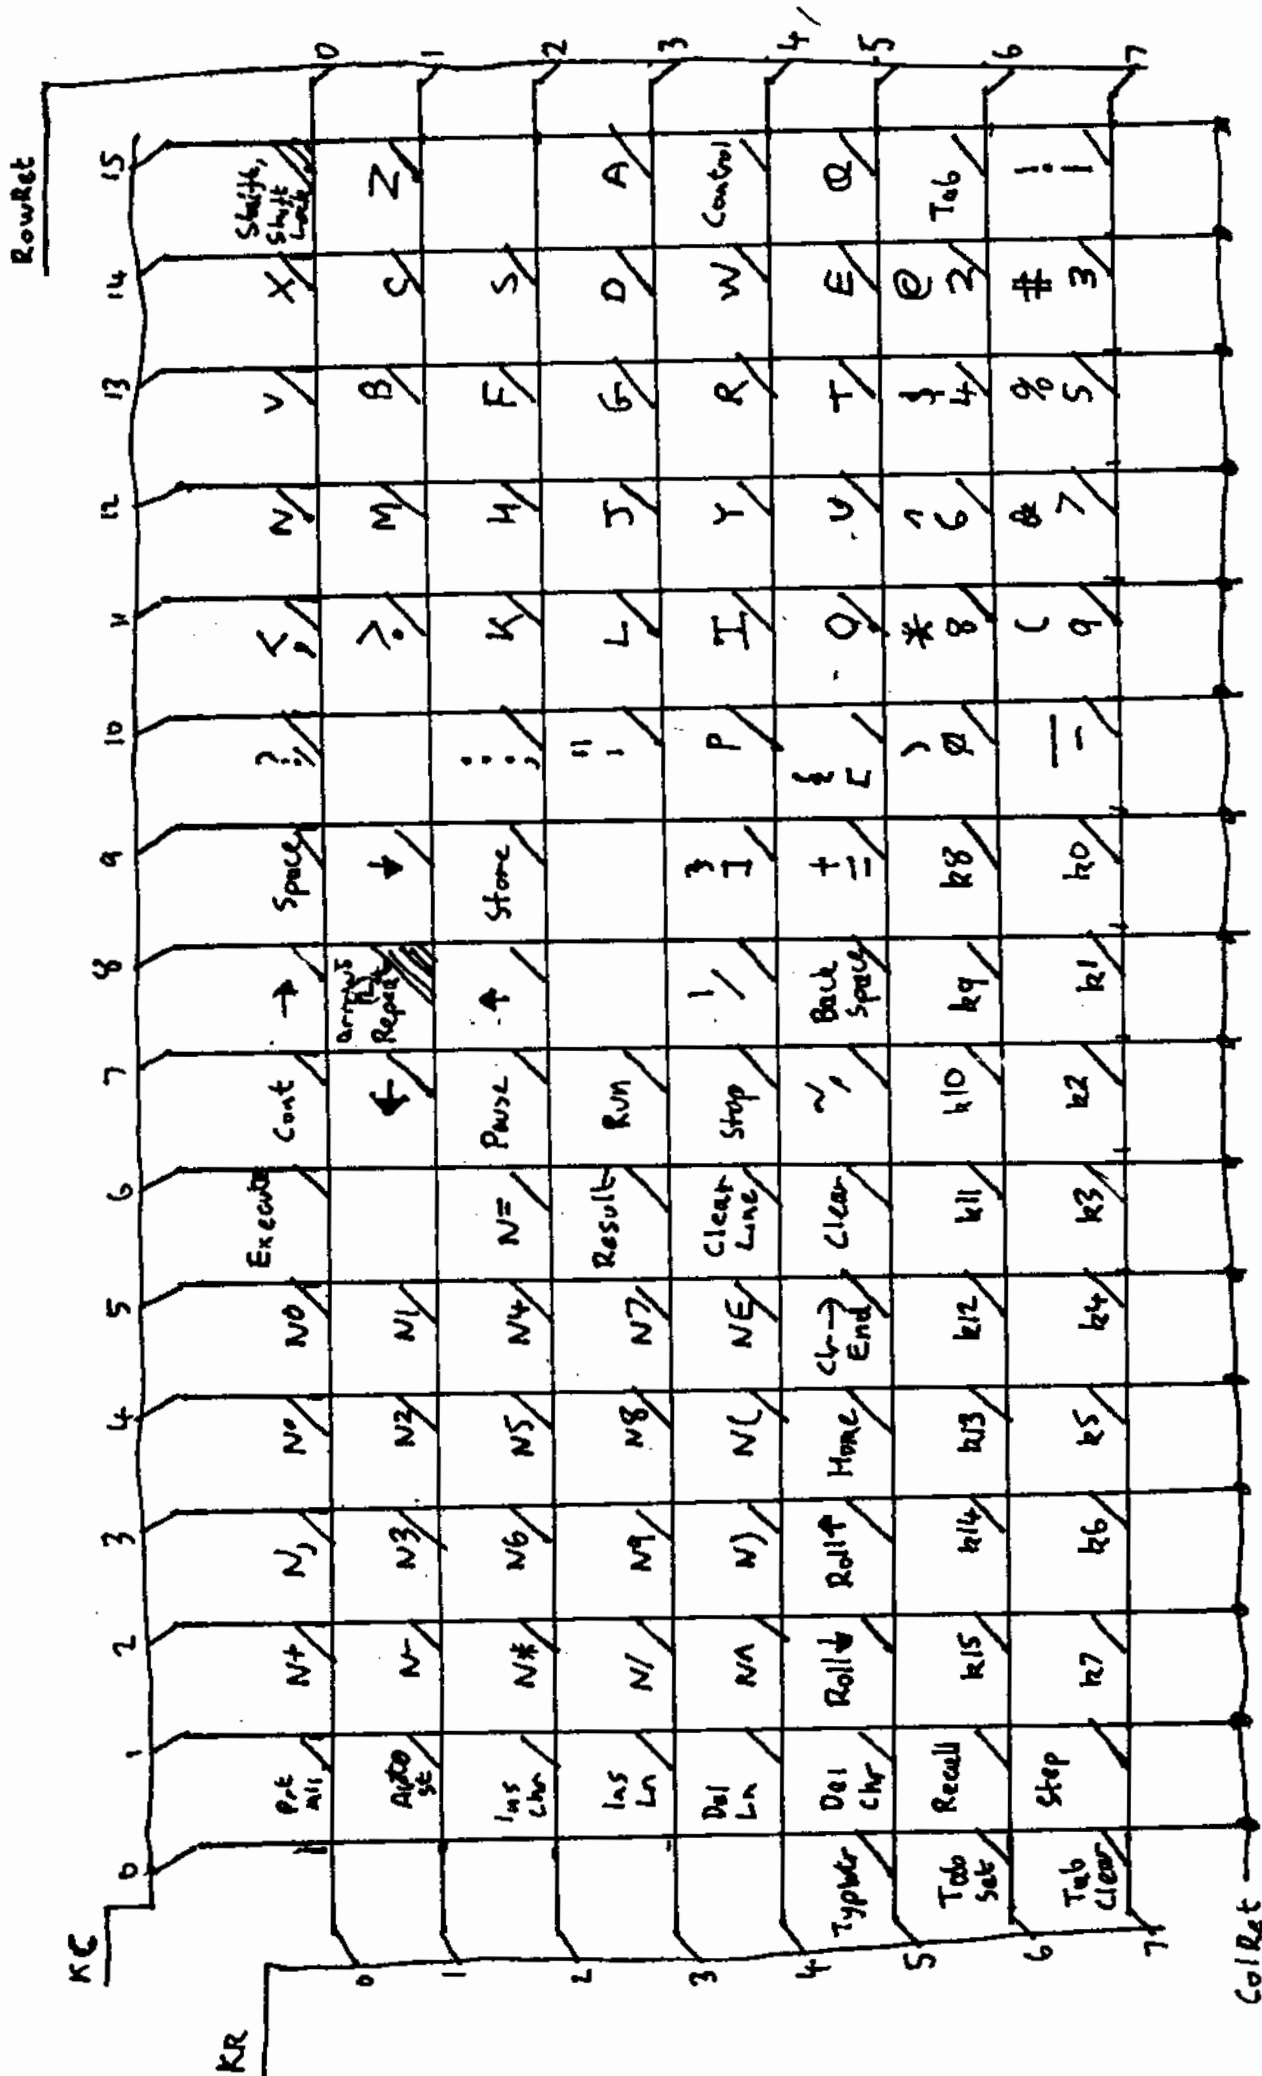 KC
RowRet
0 1 2 3 4 5 6 7 8 9 10 11 12 13 14 15
KR
0 Prt All N+ N, N. N0 Execute Cont → Space ? / < , N V X Shift, Shift Lock 0
1 Auto St N- N3 N2 N1 ← Repeat ↓ > . M B C Z 1
2 Ins Chr N* N6 N5 N4 N= Pause ↑ Store : ; K H F S 2
3 Ins Ln N/ N9 N8 N7 Result Run " ' L J G D A 3
4 Del Ln N^ N) N( NE Clear Line Stop | \ } ] P I Y R W Control 4
5 Typwtr Del Chr Roll↓ Roll↑ Home Clr→ End Clear ~ ` Back Space + = { [ O U T E Q 5
6 Tab Set Recall k15 k14 k13 k12 k11 k10 k9 k8 ) Ø * 8 ^ 6 $ 4 @ 2 Tab 6
7 Tab Clear Step k7 k6 k5 k4 k3 k2 k1 k0 _ - ( 9 & 7 % 5 # 3 ! 1 7
ColRet